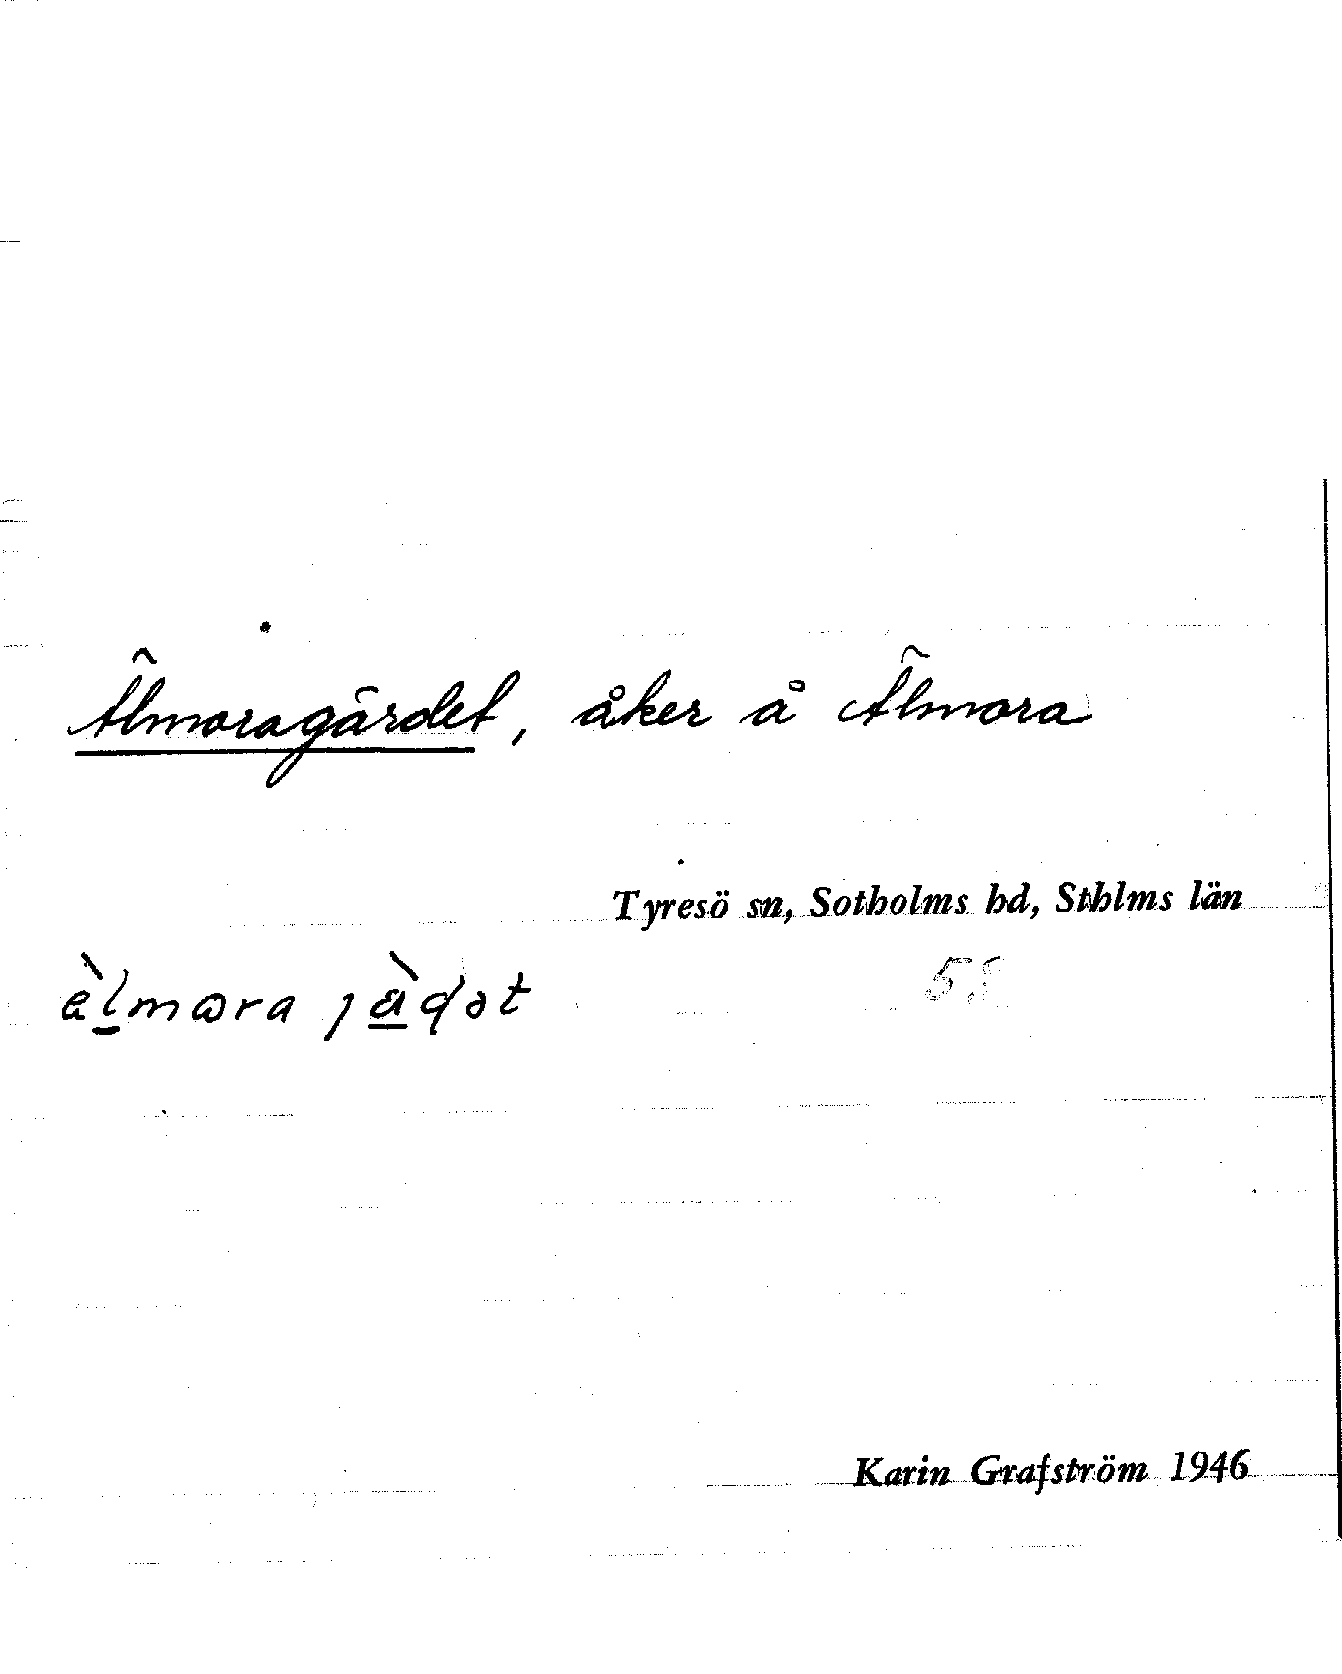 Älmoragärdet, åker å Älmora
Tyresö sn, Sotholms hd, Sthlms län
58
Karin Grafström 1946